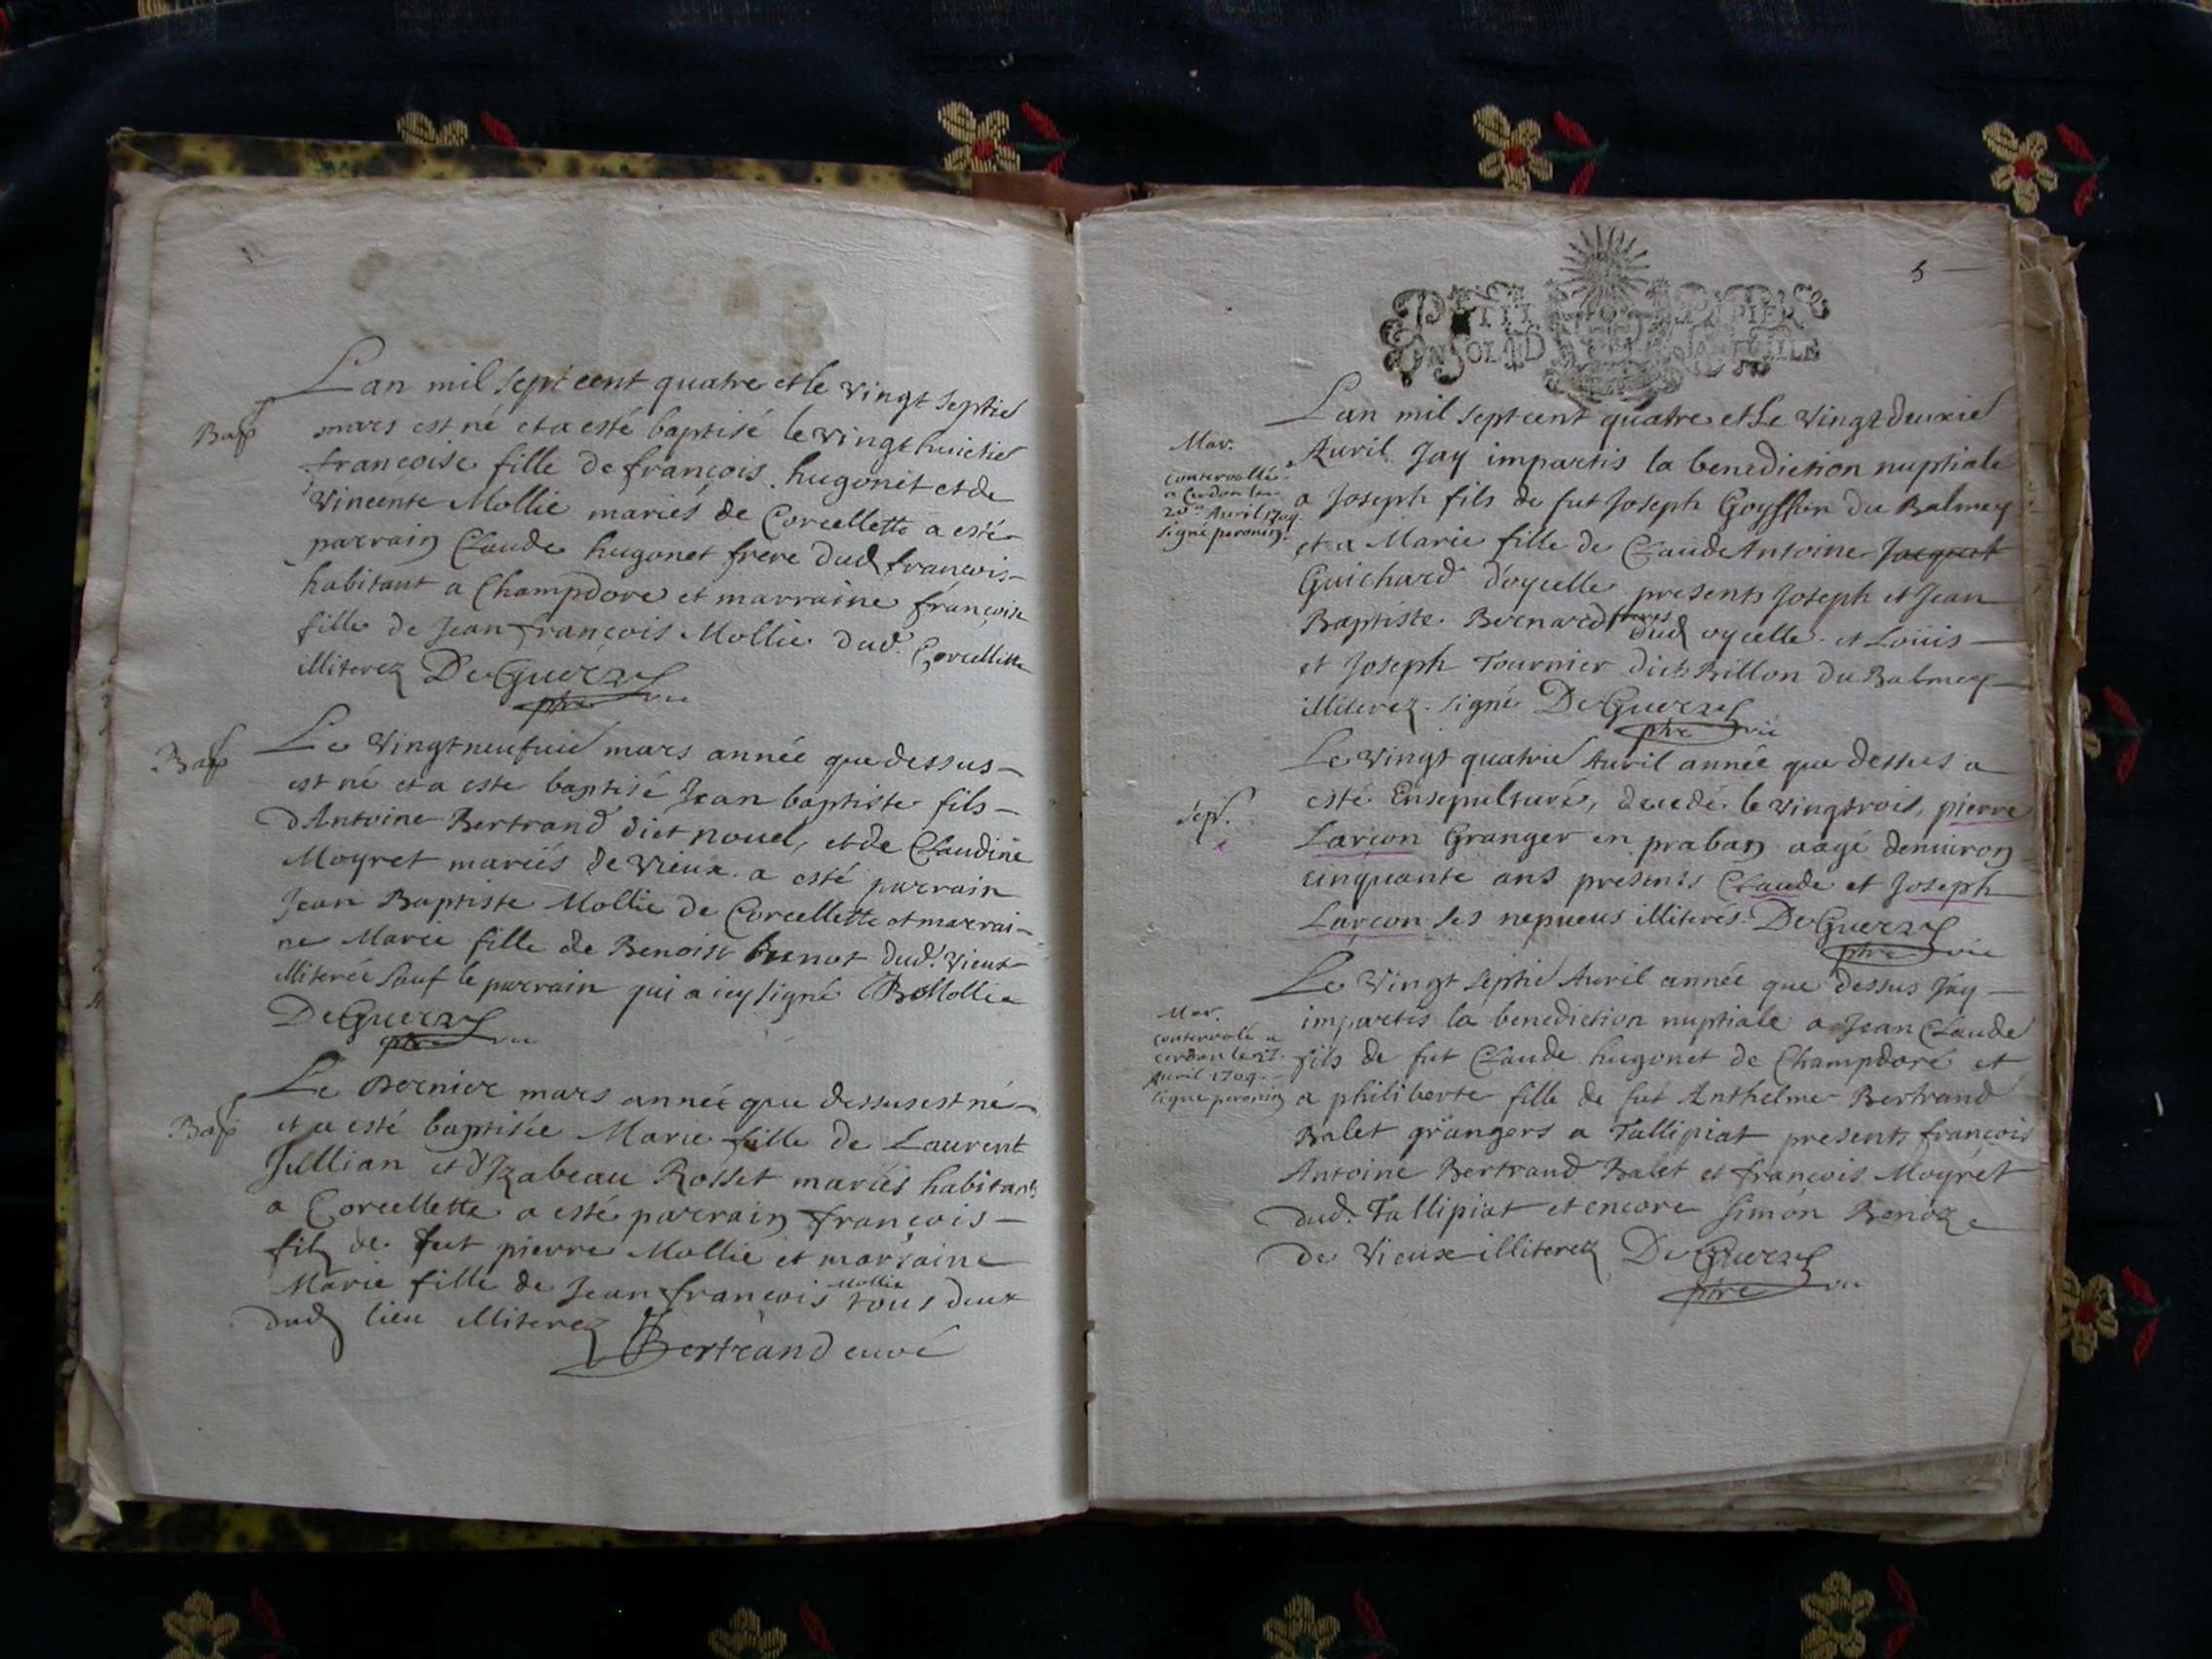 L'an mil sept cent quatre et le vingt septie
Bap
mars est né et a esté baptisé le vingt huictie
françoise fille de françois hugonet et de
Vincente Mollie mariés de Corcellette a esté
parrain Claude hugonet frere dud françois
habitant a Champdore et marraine françoise
fille de Jean françois Mollie dud. Corcellette
illiterez DeGuerry
ptre vic
Bap
Le Vingt neufuie mars année que dessus
est né et a este baptisé Jean baptiste fils
d'Antoine Bertrand diet nouel, et de Claudine
Moyret mariés de Vieux a esté parrain
Jean Baptiste Mollie de Corcellette et marrai-
ne Marie fille de Benoist dud. Vieux
illiterée sauf le parrain qui a icy signé BMollie
DeGuerry
ptre vic
Bap
Le Dernier mars année que dessus est né
et a esté baptisée Marie fille de Laurent
Jullian et d'Izabeau Rosset mariés habitants
a Corcellette a esté parrain françois
filz de fut pierre Mollie et marraine
Marie fille de Jean françois Mollie tous deux
dud lieu illiterez
Bertrand curé
5
PETIT PAPIER
UN SOL LA FEUILLE
L'an mil sept cent quatre et Le Vingt deuxie
Mar.
controollé
a Cerdon le
Avril 1704
signé peronin
Auril Jay impartis la benediction nuptiale
a Joseph fils de fut Joseph Goyffon du Balmey
et a Marie fille de Claude Antoine Jacquet
Guichard d'oyselle presents Joseph et Jean
Baptiste Bernard freres dud oyselle et Loüis
et Joseph Tournier dicts Billon du Balmey
illiterez signé DeGuerry
ptre vic
Sep.
Le Vingt quatrie Auril année que dessus a
esté Ensepulturé, decedé le vingtrois, pierre
Larçon Granger en praban aagé denuiron
cinquante ans presents Claude et Joseph
Larçon ses nepueus illiterés DeGuerry
ptre vic
Mar.
controolé a
cerdon le 27
Avril 1704
signé peronin
Le Vingt septie Auril année que dessus Jay
impartis la benediction nuptiale a Jean Claude
fils de fut Claude hugonet de Champdoré et
a philiberte fille de fut Anthelme Bertrand
Balet grangers a Tallipiat presents françois
Antoine Bertrand Balet et françois Moyret
dud. Tallipiat et encore Simon
de Vieux illiterez DeGuerry
ptre vic